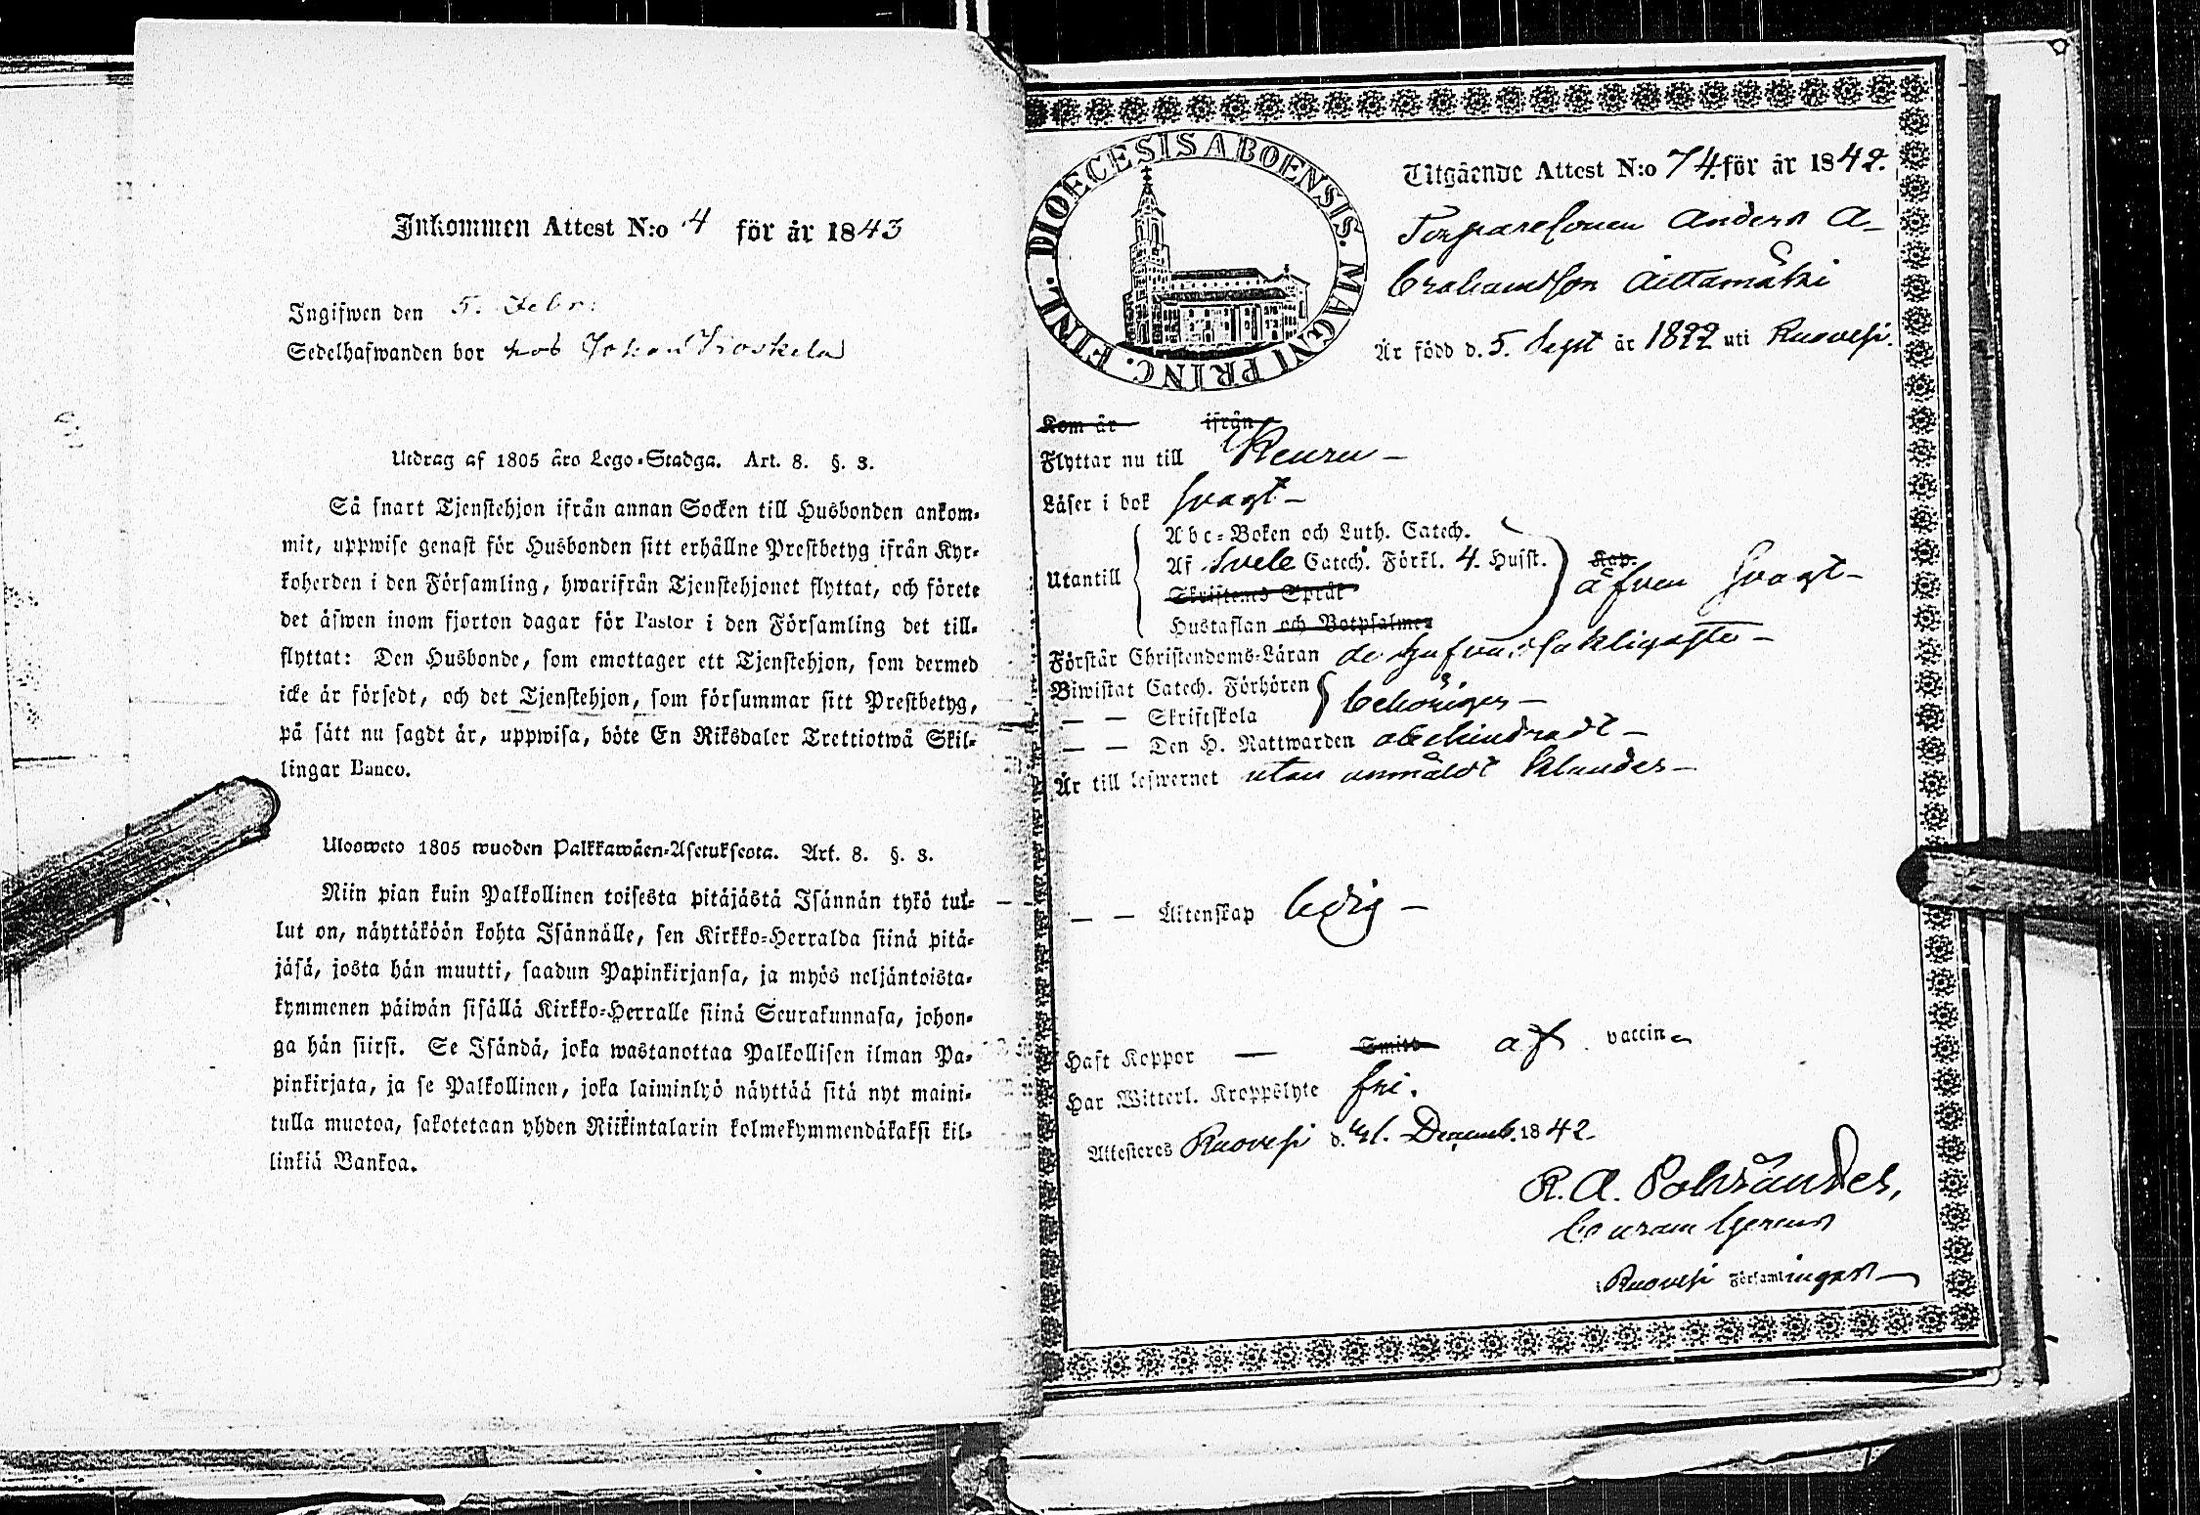 Inkommen Attest N:o 4 för år 1843
Ingifwen den 5. Febr:
Sedelhafwanden bor hos Johan Koskela
Utdrag af 1805 års Lego-Stadga. Art. 8. §. 3.
Så snart Tjenstehjon ifrån annan Socken till Husbonden ankom-
mit, uppwise genast för Husbonden sitt erhållne Prestbetyg ifrån Kyr-
koherden i den Församling, hwarifrån Tjenstehjonet flyttat, och förete
det äfwen inom fjorton dagar för Pastor i den Församling det till-
flyttat: Den Husbonde, som emottager ett Tjenstehjon, som dermed
icke är försedt, och det Tjenstehjon, som försummar sitt Prestbetyg,
på sätt nu sagdt är, uppwisa, böte En Riksdaler Trettiotwå Skil-
lingar Banco.
Ulosweto 1805 wuoden Palkkawäen-Asetuksesta. Art. 8. §. 3.
Niin pian kuin Palkollinen toisesta pitäjästä Isännän tykö tul-
lut on, näyttäköön kohta Isännälle, sen Kirkko-Herralda siinä pitä-
jäsä, josta hän muutti, saadun Papinkirjansa, ja myös neljäntoista-
kymmenen päiwän sisällä Kirkko-Herralle siinä Seurakunnasa, johon-
ga hän siirsi. Se Isändä, joka wastanottaa Palkollisen ilman Pa-
pinkirjata, ja se Palkollinen, joka laiminlyö näyttää sitä nyt maini-
tulla muotoa, sakotetaan yhden Riikintalarin kolmekymmendäkaksi kil-
linkiä Bankoa.
DIOECESIS ABOENSIS. MAGNI PRINC. FINL.
Utgående Attest N:o 74. för år 1842.
Torparesonen Anders A-
brahamsson Aittamäki
Är född d. 5. Sept år 1822 uti Ruovesi.
Kom år ifrån
Flyttar nu till Keuru –
Läser i bok svagt –
Utantill
Abc-Boken och Luth. Catech.
Af Svebe Catech. Förkl. 4. Hufst.
Skriftens Språk
Hustaflan och Botpsalmer
Kap.
äfven svagt –
Förstår Christendoms-Läran
Biwistat Catech. Förhören
– – Skriftskola
behörigen –
– – Den H. Nattwarden obehindradt –
Är till lefwernet utan anmäldt klander –
– – Äktenskap ledig –
Haft Koppor — Smitt af vaccin
Har Witterl. Kroppslyte fri.
Attesteras Ruovesi d. 31. Decemb. 1842.
R. A.
Curam Gerens
Ruovesi Församlingar –